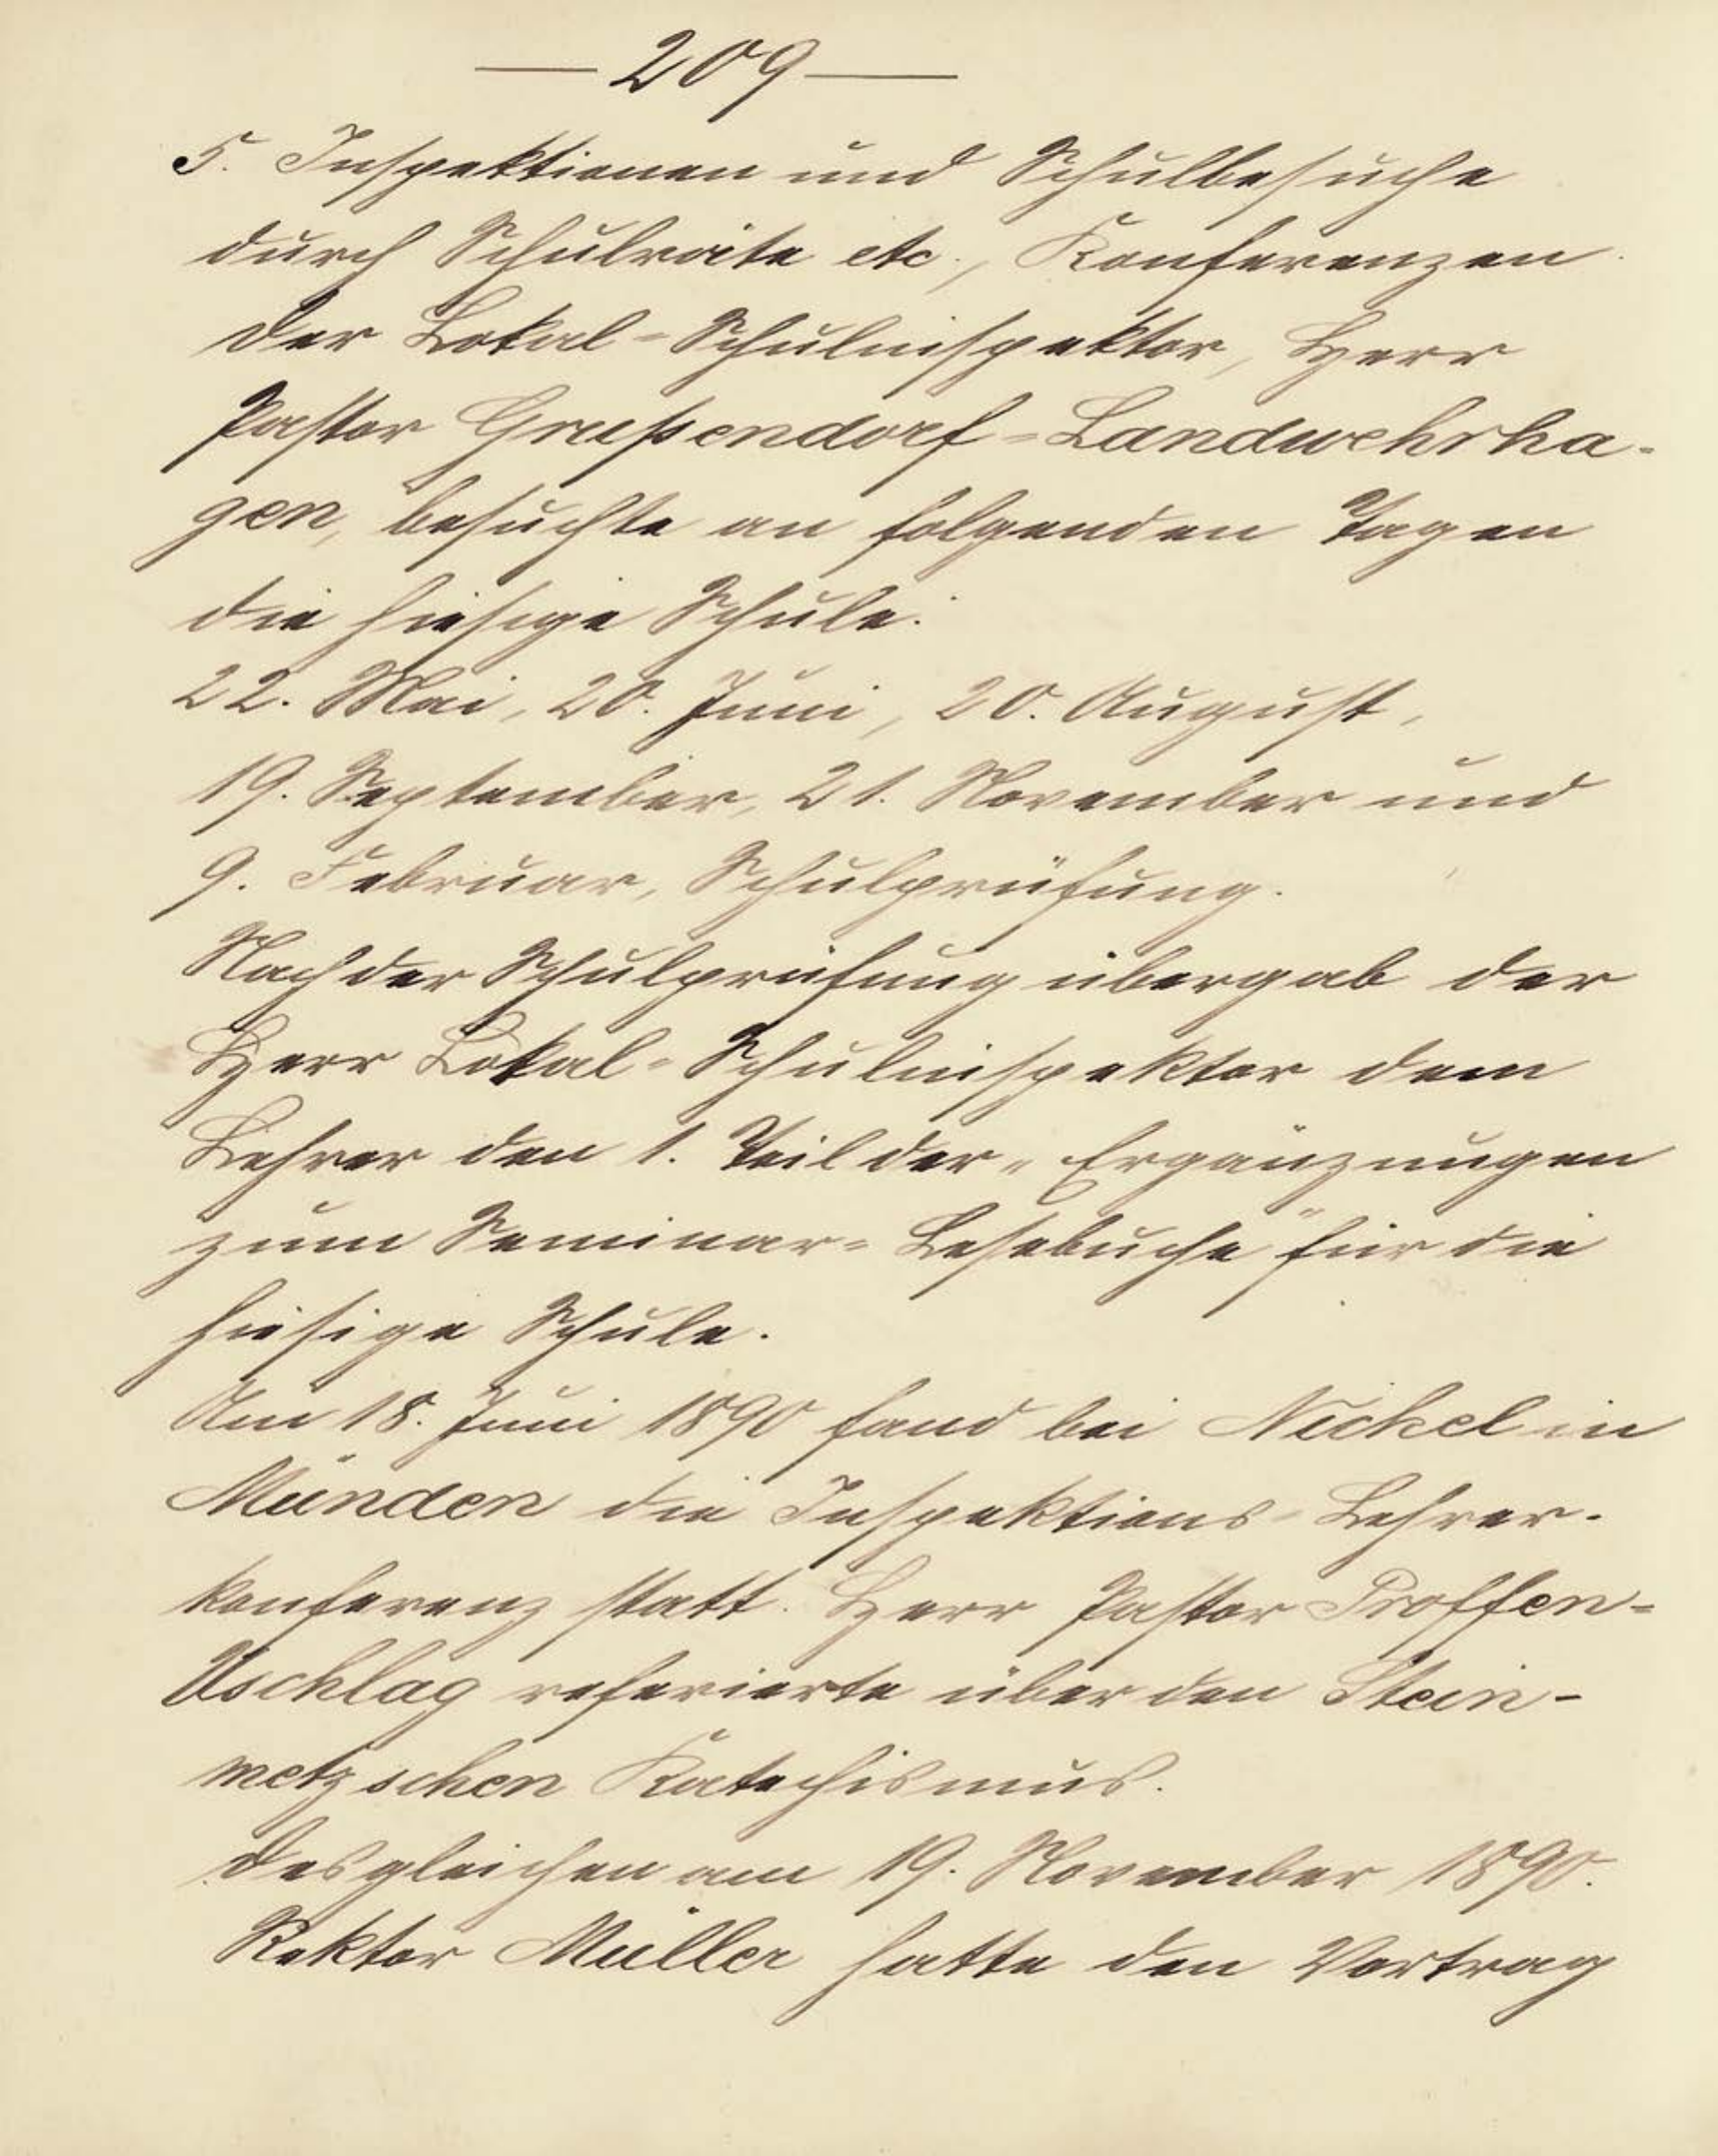 — 209 —
5. Inspektionen und Schulbesuche
durch Schulräte etc., Konferenzen.
Der Lokal-Schulinspektor, Herr
Pastor Greßendorf-Landwehrha-
gen, besuchte an folgenden Tagen
die hiesige Schule:
22. Mai, 20. Juni, 20. August,
19. September, 21. November und
9. Februar, Schulprüfung.
Nach der Schulprüfung übergab der
Herr Lokal-Schulinspektor dem
Lehrer den 1. Teil der „Ergänzungen
zum Seminar-Lesebuche" für die
hiesige Schule.
Am 18. Juni 1890 fand bei Nickel in
Münden die Inspektions-Lehrer-
konferenz statt. Herr Pastor Proffen-
Uschlag referierte über den Stein-
metzschen Katechismus.
Desgleichen am 19. November 1890.
Rektor Müller hatte den Vortrag